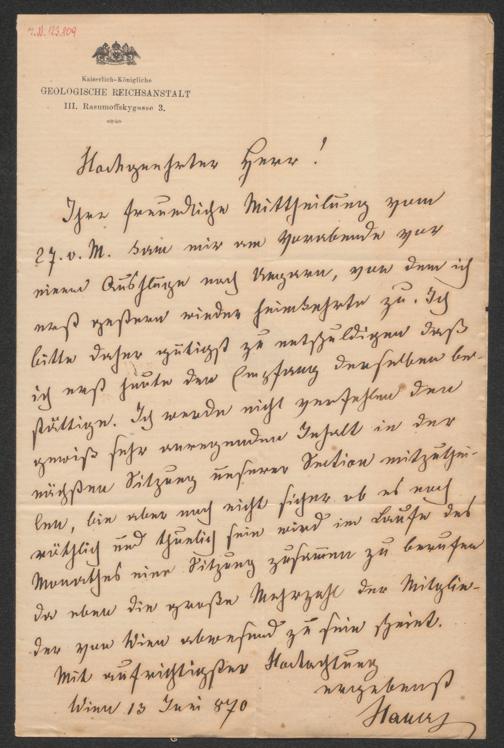 I.N. 123.809
Kaiserlich-Königliche
GEOLOGISCHE REICHSANSTALT
III. Rasumoffskygasse 3.
Hochgeehrter Herr!
Ihre freundliche Mittheilung vom
27. v. M. kam mir am Vorabende vor
einem Ausfluge nach Ungarn, von dem ich
erst gestern wieder heimkehrte zu. Ich
bitte daher gütigst zu entschuldigen daß
ich erst heute den Empfang derselben be-
stättige. Ich werde nicht verfehlen den
gewiß sehr anregenden Inhalt in der
nächsten Sitzung unserer Section mitzuthei-
len, bin aber noch nicht sicher ob es noch
räthlich und thunlich sein wird im Laufe des
Monathes eine Sitzung zusammen zu berufen
da eben die große Mehrzahl der Mitglie-
der von Wien abwesend zu sein scheint.
Mit aufrichtigster Hochachtung
ergebenst
Wien 13 Juni 870
Hauer